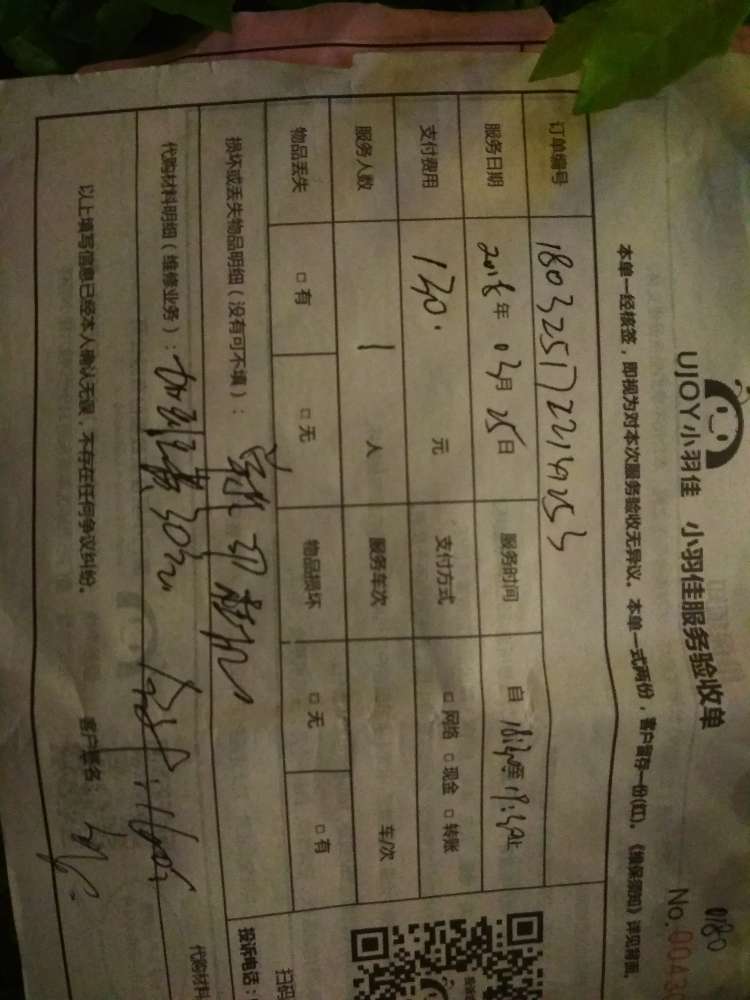 UJOY小羽佳 小羽佳服务验收单
0180
No.0043
本单一经核签，即视为对本次服务验收无异议。本单一式两份，客户留存一份(红)。《维保须知》详见背面。
订单编号 180325172214253
服务日期 2018年 03月 25日 服务时间 自 至 止
支付费用 130. 元 支付方式 □网络 □现金 □转账
服务人数 1 人 服务车次 车/次
物品丢失 □有 □无 物品损坏 □无 □有
损坏或丢失物品明细（没有可不填）：
代购材料明细（维修业务）：加班费30元
以上填写信息已经本人确认无误，不存在任何争议纠纷。 客户签名：
扫码
投诉电话：
代购材料